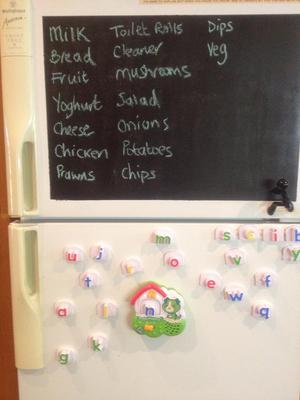 Westinghouse
Milk Toilet Rolls Dips
Bread Cleaner Veg
Fruit mushrooms
Yoghurt Salad
Cheese Onions
Chicken Potatoes
Prawns Chips
m s c i b
u j r o v y
t e w q f
a l n
g k